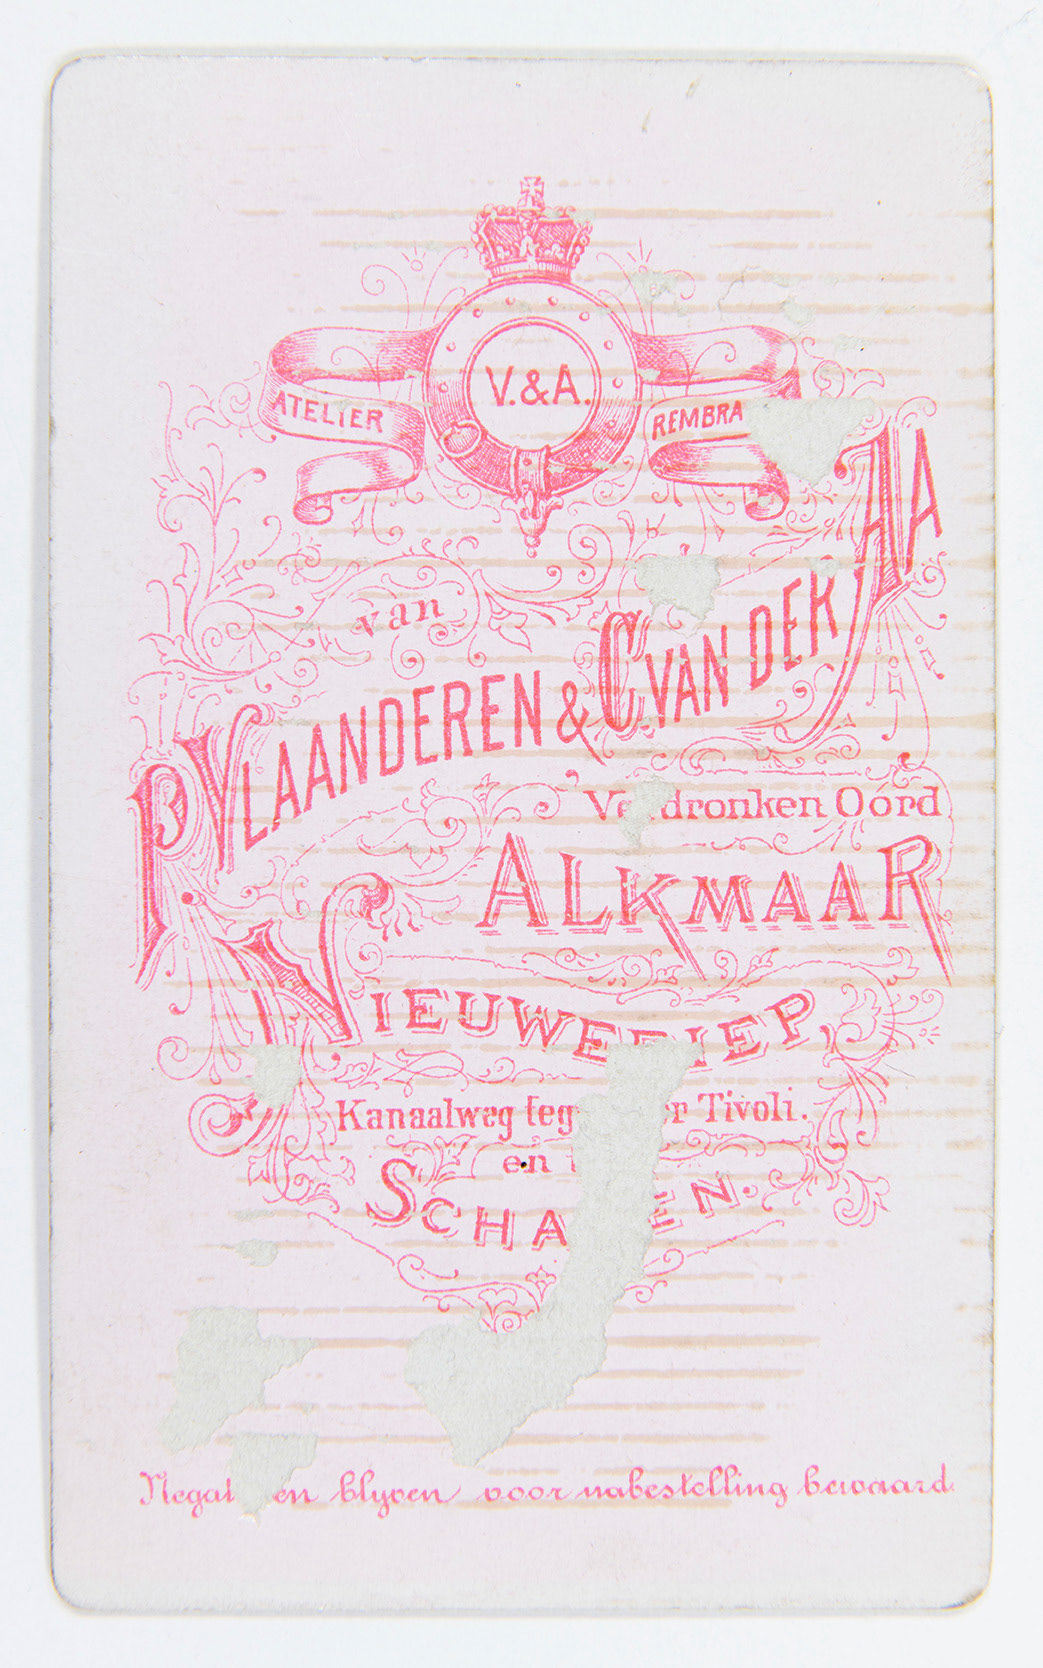 V.&A.
ATELIER REMBRA
van
P. VLAANDEREN & C. VAN DER AA
Verdronken Oord
ALKMAAR
NIEUWEDIEP,
Kanaalweg Tivoli.
en
SCHAGEN.
Negatieven blyven voor nabestelling bewaard.